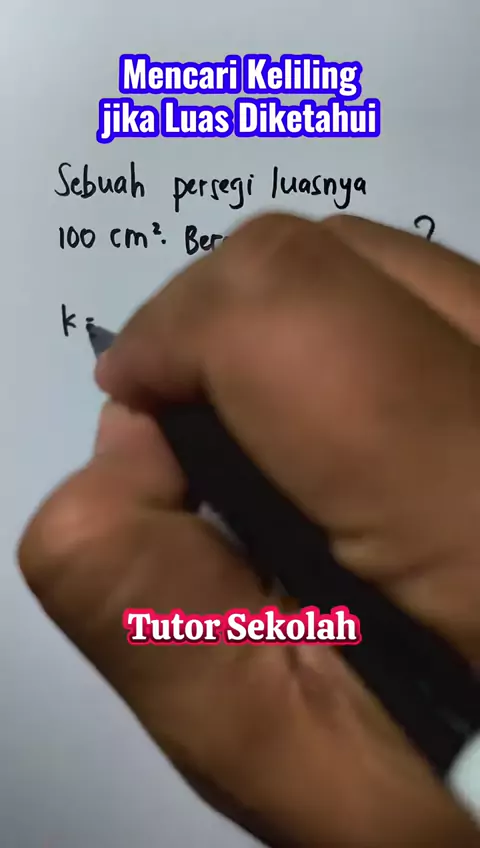 Mencari Keliling
jika Luas Diketahui
Sebuah persegi luasnya
100 cm². ?
k =
Tutor Sekolah